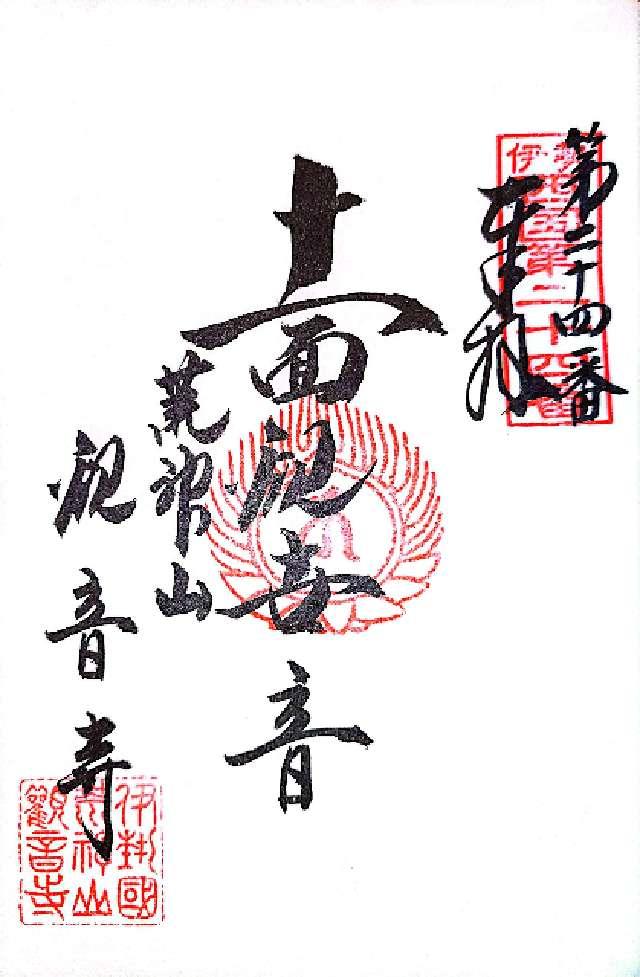 第二十四番
奉拝
伊勢西国第二十四番
十一面観世音
荒神山
観音寺
伊勢國
荒神山
觀音寺